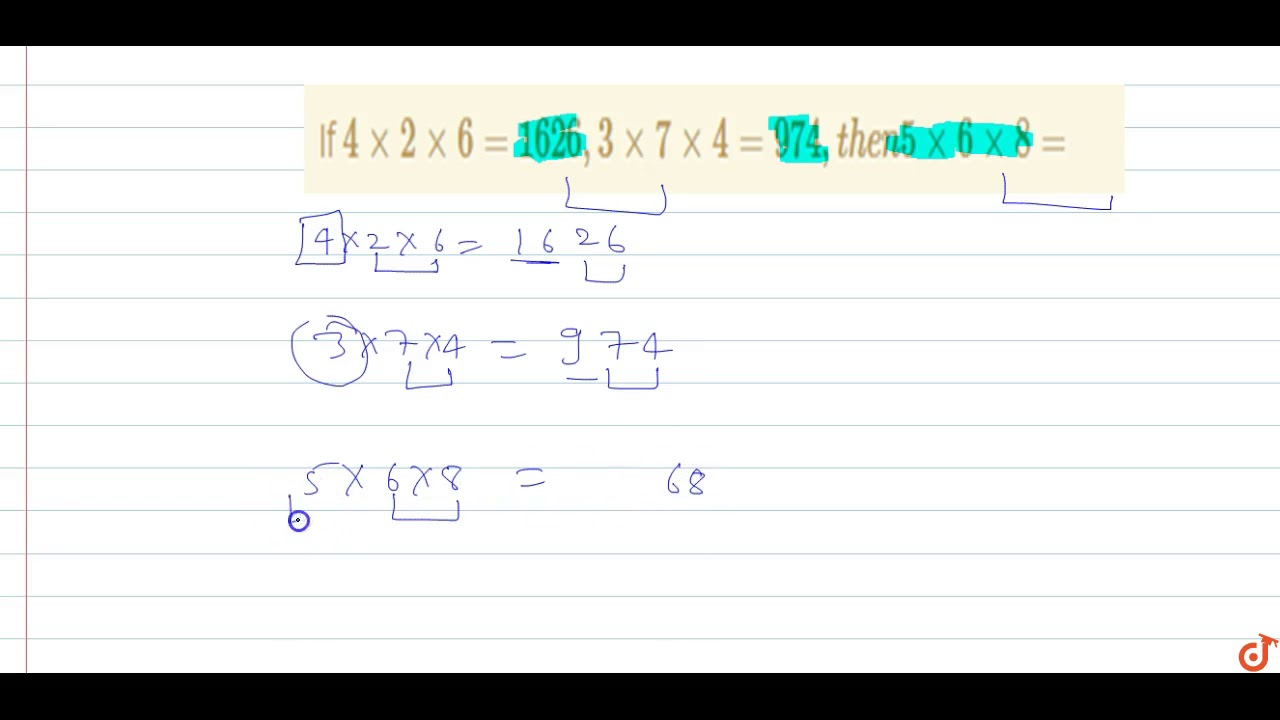 If 4 × 2 × 6 = 1626, 3 × 7 × 4 = 974, then 5 × 6 × 8 =
4 × 2 × 6 = 16 26
3 × 7 × 4 = 9 74
5 × 6 × 8 = 68